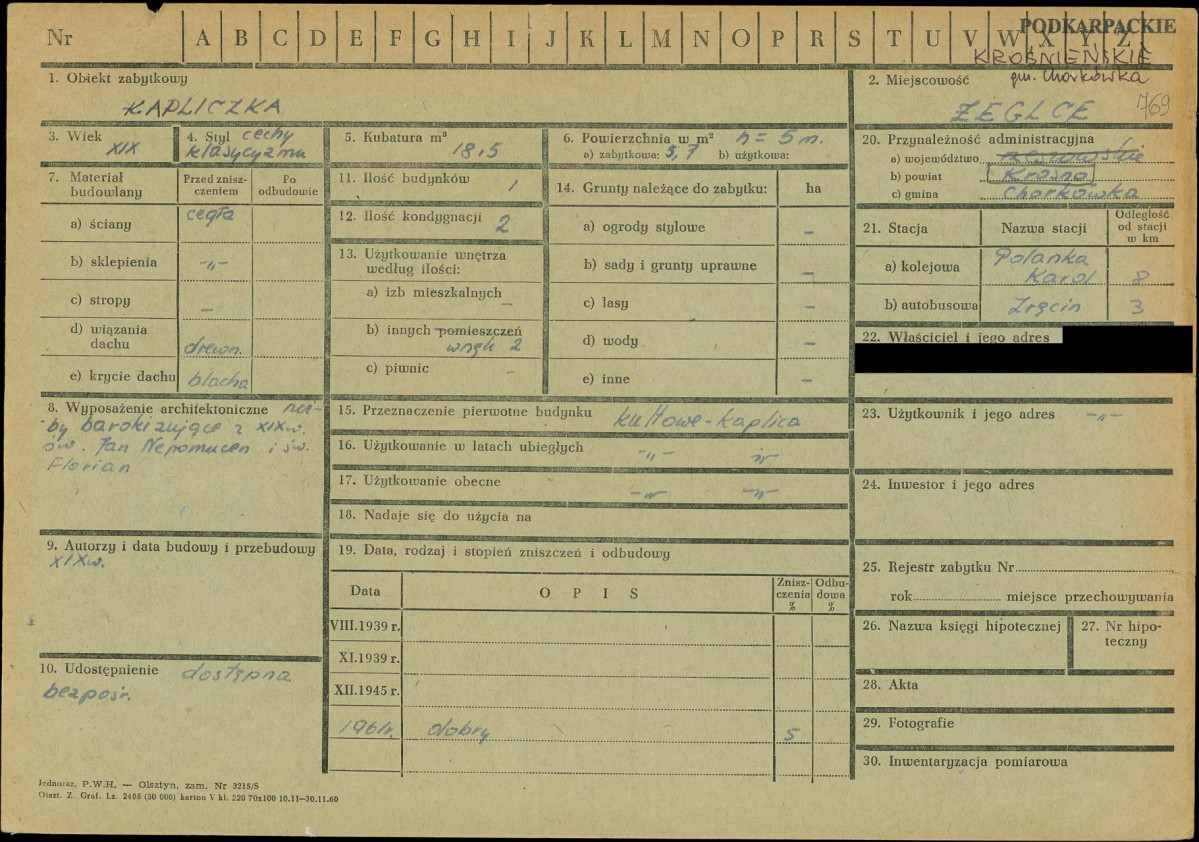 Nr A B C D E F G H I J K L M N O P R S T U V W X Y Z
PODKARPACKIE
KROŚNIEŃSKIE
gm. Chorkówka
1. Obiekt zabytkowy
KAPLICZKA
2. Miejscowość
769
ŻEGLCE
3. Wiek
XIX
4. Styl cechy
klasycyzmu
5. Kubatura m³
18,5
6. Powierzchnia w m² h = 5 m.
a) zabytkowa: 5,7 b) użytkowa:
7. Materiał budowlany
Przed zniszczeniem
Po odbudowie
a) ściany cegła
b) sklepienia -„-
c) stropy –
d) wiązania dachu drewn.
e) krycie dachu blacha
8. Wyposażenie architektoniczne rzeź-
by barokizujące z XIX w.
św. Jan Nepomucen i św.
Florian
9. Autorzy i data budowy i przebudowy
XIX w.
10. Udostępnienie dostępna
bezpośr.
11. Ilość budynków 1
12. Ilość kondygnacji 2
13. Użytkowanie wnętrza
według ilości:
a) izb mieszkalnych –
b) innych pomieszczeń
wnęk 2
c) piwnic –
14. Grunty należące do zabytku: ha
a) ogrody stylowe –
b) sady i grunty uprawne –
c) lasy –
d) wody –
e) inne –
15. Przeznaczenie pierwotne budynku kultowe-kaplica
16. Użytkowanie w latach ubiegłych -„- -„-
17. Użytkowanie obecne -„- -„-
18. Nadaje się do użycia na
19. Data, rodzaj i stopień zniszczeń i odbudowy
Data OPIS Zniszczenia % Odbudowa %
VIII.1939 r.
XI.1939 r.
XII.1945 r.
1961r. dobry 5
20. Przynależność administracyjna
a) województwo rzeszowskie
b) powiat Krosno
c) gmina Chorkówka
21. Stacja Nazwa stacji Odległość od stacji w km
a) kolejowa Polanka
Karol 8
b) autobusowa Zręcin 3
22. Właściciel i jego adres
23. Użytkownik i jego adres -„-
24. Inwestor i jego adres
25. Rejestr zabytku Nr
rok miejsce przechowywania
26. Nazwa księgi hipotecznej
27. Nr hipo-
teczny
28. Akta
29. Fotografie
30. Inwentaryzacja pomiarowa
Jednoraz. P.W.H. — Olsztyn, zam. Nr 3215/S
Olszt. Z. Graf. Lz. 2485 (30 000) karton V kl. 220 70x100 10.11—30.11.60